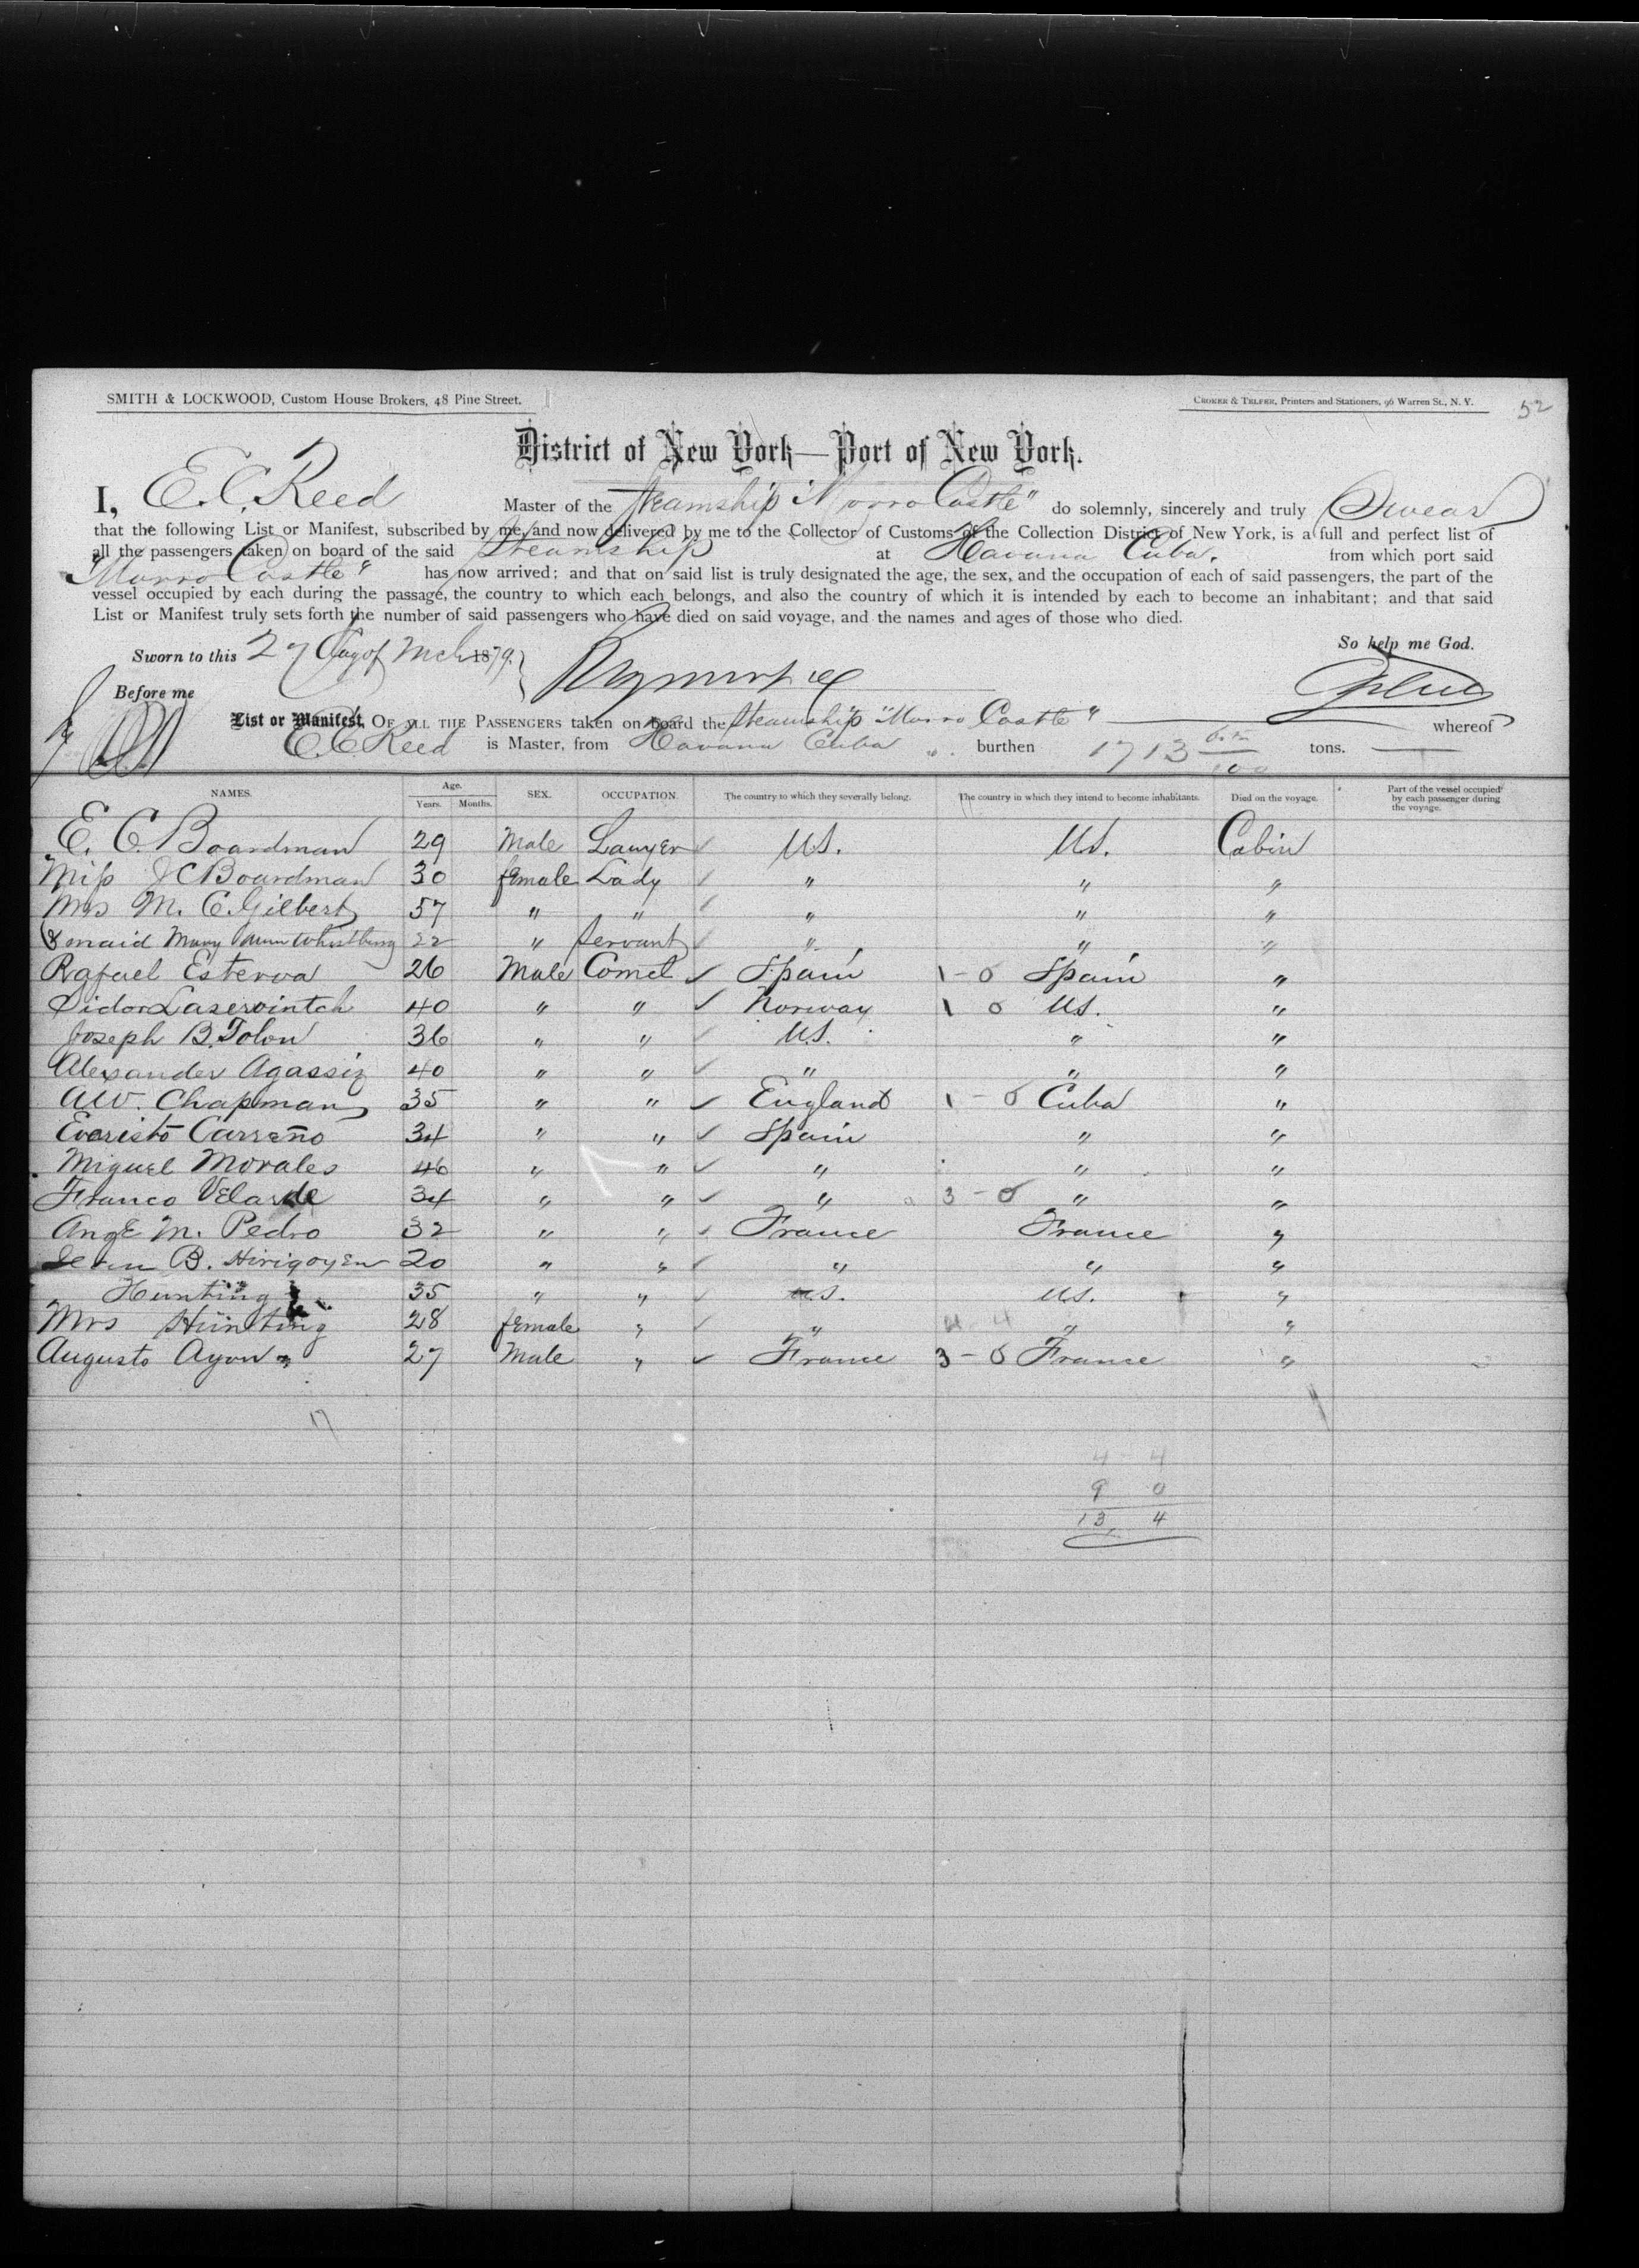 SMITH & LOCKWOOD, Custom House Brokers, 48 Pine Street.
CROKER & TELFER, Printers and Stationers, 96 Warren St., N. Y.
52
District of New York—Port of New York.
I, E. C. Reed Master of the Steamship "Morro Castle" do solemnly, sincerely and truly Swear
that the following List or Manifest, subscribed by me, and now delivered by me to the Collector of Customs of the Collection District of New York, is a full and perfect list of
all the passengers taken on board of the said Steamship at Havana Cuba. from which port said
"Morro Castle" has now arrived; and that on said list is truly designated the age, the sex, and the occupation of each of said passengers, the part of the
vessel occupied by each during the passage, the country to which each belongs, and also the country of which it is intended by each to become an inhabitant; and that said
List or Manifest truly sets forth the number of said passengers who have died on said voyage, and the names and ages of those who died.
So help me God.
Sworn to this 27 day of Mch 1879.
Before me
List or Manifest, OF ALL THE PASSENGERS taken on board the Steamship "Morro Castle" whereof
E. C. Reed is Master, from Havana Cuba burthen 1713 /100 tons.
NAMES. Age. Years. Months. SEX. OCCUPATION. The country to which they severally belong. The country in which they intend to become inhabitants. Died on the voyage. Part of the vessel occupied by each passenger during the voyage.
E. C. Boardman 29 Male Lawyer ✓ US. US. Cabin
Miss J C Boardman 30 female Lady ✓ " " "
Mrs M. C. Gilbert 57 " " ✓ " " "
& maid Mary Ann 22 " Servant ✓ " " "
Rafael Esterva 26 Male Comcl ✓ Spain 1-0 Spain "
40 " " ✓ Norway 1 0 US. "
Joseph B. Tolon 36 " " ✓ U.S. " "
Alexander Agassiz 40 " " ✓ " " "
A W. Chapman 35 " " ✓ England 1-0 Cuba "
Evaristo Carreño 34 " " ✓ Spain " "
Miguel Morales 46 " " ✓ " " "
Franco Velarde 34 " " ✓ " 3-0 " "
Ange M. Pedro 32 " " ✓ France France "
B. Hirigoyen 20 " " ✓ " " "
Hunting 35 " " ✓ U.S. US. "
Mrs Hunting 28 female " ✓ " 4 4 " "
Augusto Ayon 27 Male " ✓ France 3-0 France "
17
4 4
9 0
13 4